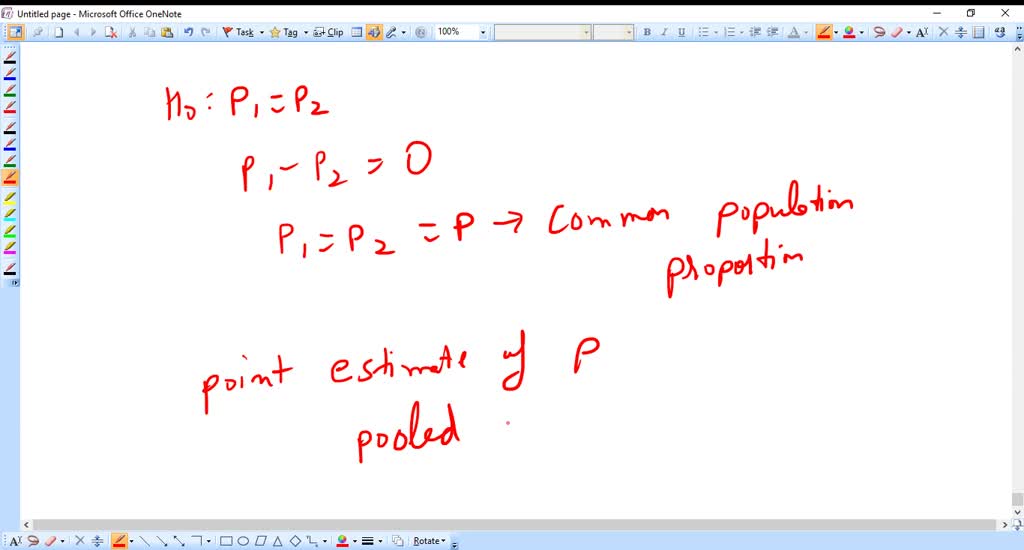 Untitled page - Microsoft Office OneNote
Task Tag Clip 100% B I U A
H₀: P₁ = P₂
P₁ - P₂ = 0
P₁ = P₂ = P → Common population
proportion
point estimate of P
pooled
Rotate